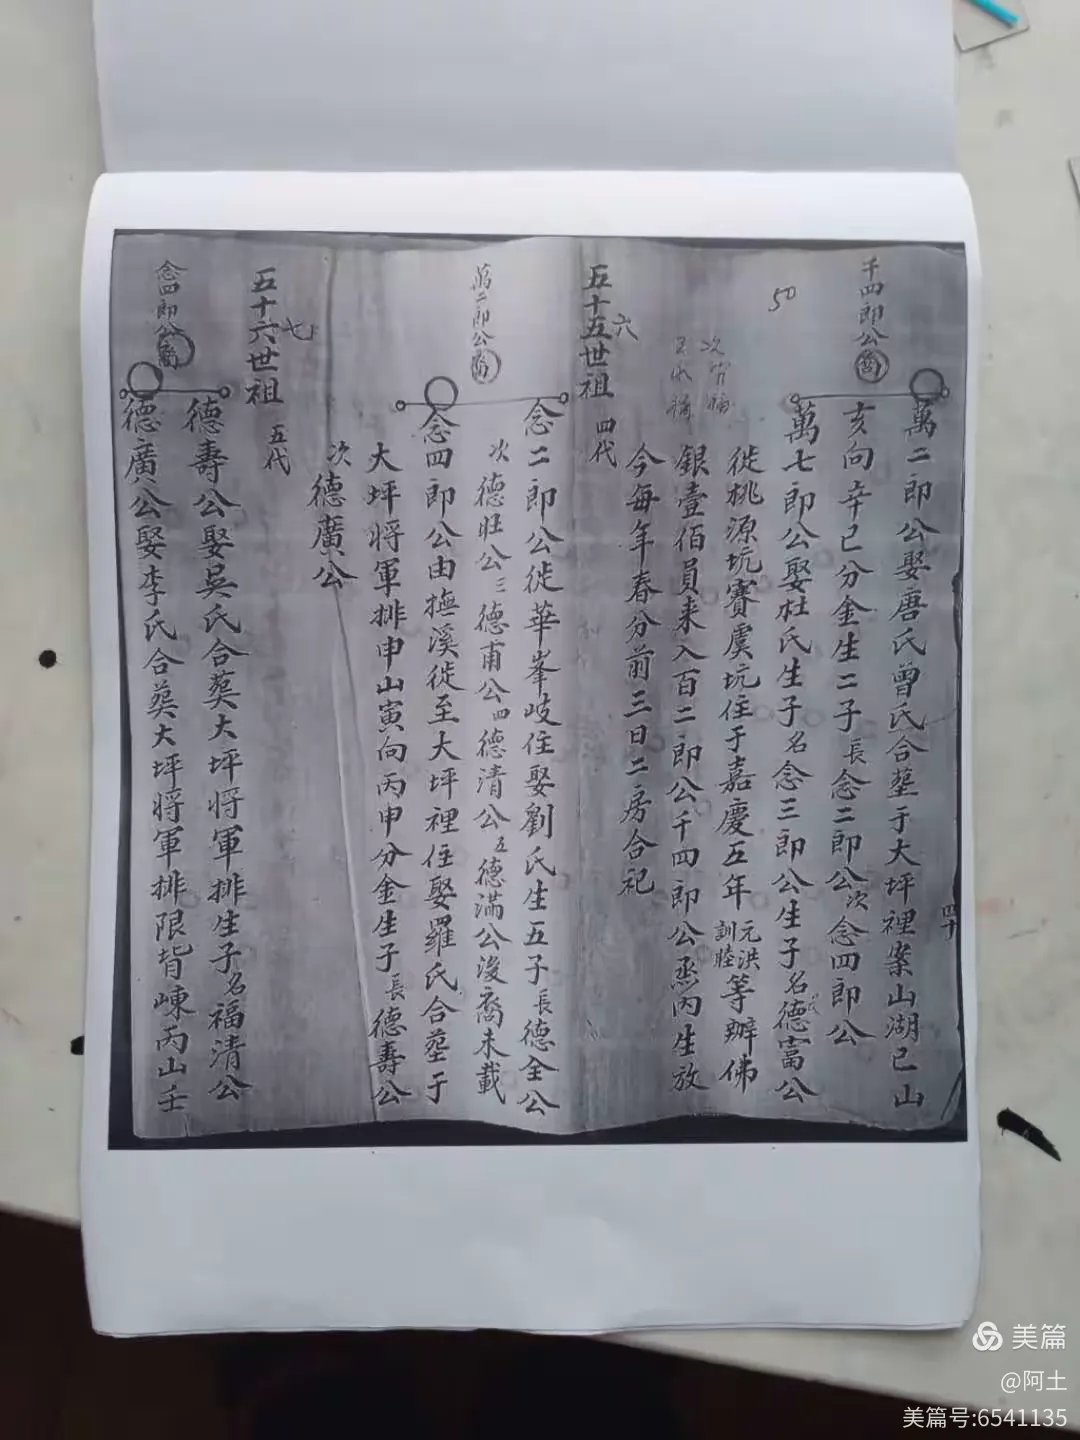 千四郎公裔
萬二郎公娶唐氏曾氏合塟于大坪裡案山湖巳山
亥向辛巳分金生二子長念二郎公次念四郎公
萬七郎公娶杜氏生子名念三郎公生子名德富公
徙桃源坑賽虞坑住于嘉慶五年元洪訓睦等辦佛
銀壹佰員来入百二郎公千四郎公烝內生放
今每年春分前三日二房合祀
50
四十
五十五世祖
六
四代
萬二郎公裔
念二郎公徙華峯岐住娶劉氏生五子長德全公
次德旺公三德甫公四德清公五德滿公後裔未載
念四郎公由撫溪徙至大坪裡住娶羅氏合塟于
大坪將軍排申山寅向丙申分金生子長德壽公
次德廣公
五十六世祖
七
五代
念四郎公裔
德壽公娶吳氏合葬大坪將軍排生子名福清公
德廣公娶李氏合葬大坪將軍排限背崠丙山壬
美篇
@阿土
美篇号:6541135